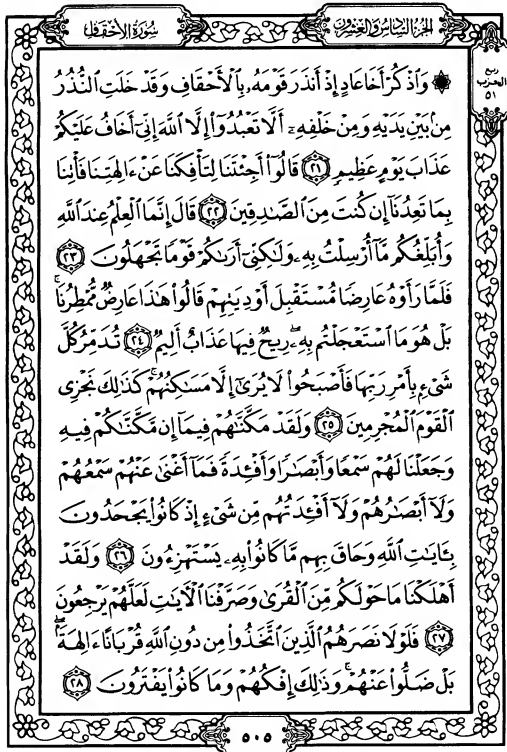 سُورَةُ الأَحْقَافِ
الجُزْءُ السَّادِسُ وَالعِشْرُونَ
رُبع
الحِزب
٥١
۞ وَٱذْكُرْ أَخَا عَادٍ إِذْ أَنذَرَ قَوْمَهُۥ بِٱلْأَحْقَافِ وَقَدْ خَلَتِ ٱلنُّذُرُ
مِنۢ بَيْنِ يَدَيْهِ وَمِنْ خَلْفِهِۦٓ أَلَّا تَعْبُدُوٓا۟ إِلَّا ٱللَّهَ إِنِّىٓ أَخَافُ عَلَيْكُمْ
عَذَابَ يَوْمٍ عَظِيمٍ ٢١ قَالُوٓا۟ أَجِئْتَنَا لِتَأْفِكَنَا عَنْ ءَالِهَتِنَا فَأْتِنَا
بِمَا تَعِدُنَآ إِن كُنتَ مِنَ ٱلصَّـٰدِقِينَ ٢٢ قَالَ إِنَّمَا ٱلْعِلْمُ عِندَ ٱللَّهِ
وَأُبَلِّغُكُم مَّآ أُرْسِلْتُ بِهِۦ وَلَـٰكِنِّىٓ أَرَىٰكُمْ قَوْمًا تَجْهَلُونَ ٢٣
فَلَمَّا رَأَوْهُ عَارِضًا مُّسْتَقْبِلَ أَوْدِيَتِهِمْ قَالُوا۟ هَـٰذَا عَارِضٌ مُّمْطِرُنَا ۚ
بَلْ هُوَ مَا ٱسْتَعْجَلْتُم بِهِۦ ۖ رِيحٌ فِيهَا عَذَابٌ أَلِيمٌ ٢٤ تُدَمِّرُ كُلَّ
شَىْءٍۭ بِأَمْرِ رَبِّهَا فَأَصْبَحُوا۟ لَا يُرَىٰٓ إِلَّا مَسَـٰكِنُهُمْ ۚ كَذَٰلِكَ نَجْزِى
ٱلْقَوْمَ ٱلْمُجْرِمِينَ ٢٥ وَلَقَدْ مَكَّنَّـٰهُمْ فِيمَآ إِن مَّكَّنَّـٰكُمْ فِيهِ
وَجَعَلْنَا لَهُمْ سَمْعًا وَأَبْصَـٰرًا وَأَفْـِٔدَةً فَمَآ أَغْنَىٰ عَنْهُمْ سَمْعُهُمْ
وَلَآ أَبْصَـٰرُهُمْ وَلَآ أَفْـِٔدَتُهُم مِّن شَىْءٍ إِذْ كَانُوا۟ يَجْحَدُونَ
بِـَٔايَـٰتِ ٱللَّهِ وَحَاقَ بِهِم مَّا كَانُوا۟ بِهِۦ يَسْتَهْزِءُونَ ٢٦ وَلَقَدْ
أَهْلَكْنَا مَا حَوْلَكُم مِّنَ ٱلْقُرَىٰ وَصَرَّفْنَا ٱلْـَٔايَـٰتِ لَعَلَّهُمْ يَرْجِعُونَ
٢٧ فَلَوْلَا نَصَرَهُمُ ٱلَّذِينَ ٱتَّخَذُوا۟ مِن دُونِ ٱللَّهِ قُرْبَانًا ءَالِهَةًۢ ۖ
بَلْ ضَلُّوا۟ عَنْهُمْ ۚ وَذَٰلِكَ إِفْكُهُمْ وَمَا كَانُوا۟ يَفْتَرُونَ ٢٨
٥٠٥